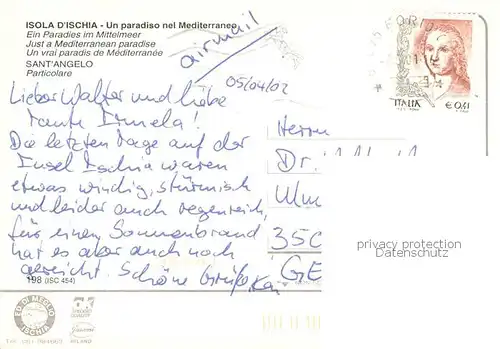 ISOLA D'ISCHIA - Un paradiso nel Mediterraneo
Ein Paradies im Mittelmeer
Just a Mediterranean paradise
Un vrai paradis de Méditerranée
SANT'ANGELO
Particolare
airmail
05/04/02
Lieber Walter und liebe
Tante Irmela!
Die letzten Tage auf der
Insel Ischia waren
etwas windig, stürmisch
und leider auch regenreich,
für einen Sonnenbrand
hat es aber auch noch
gereicht. Schöne Grüße, Kai
198 (ISC 454)
ITALIA
€ 0,41
Herrn
Dr.
Ulm
35C
GE
privacy protection
Datenschutz
ED. DI MEGLIO
ISCHIA
MILANO